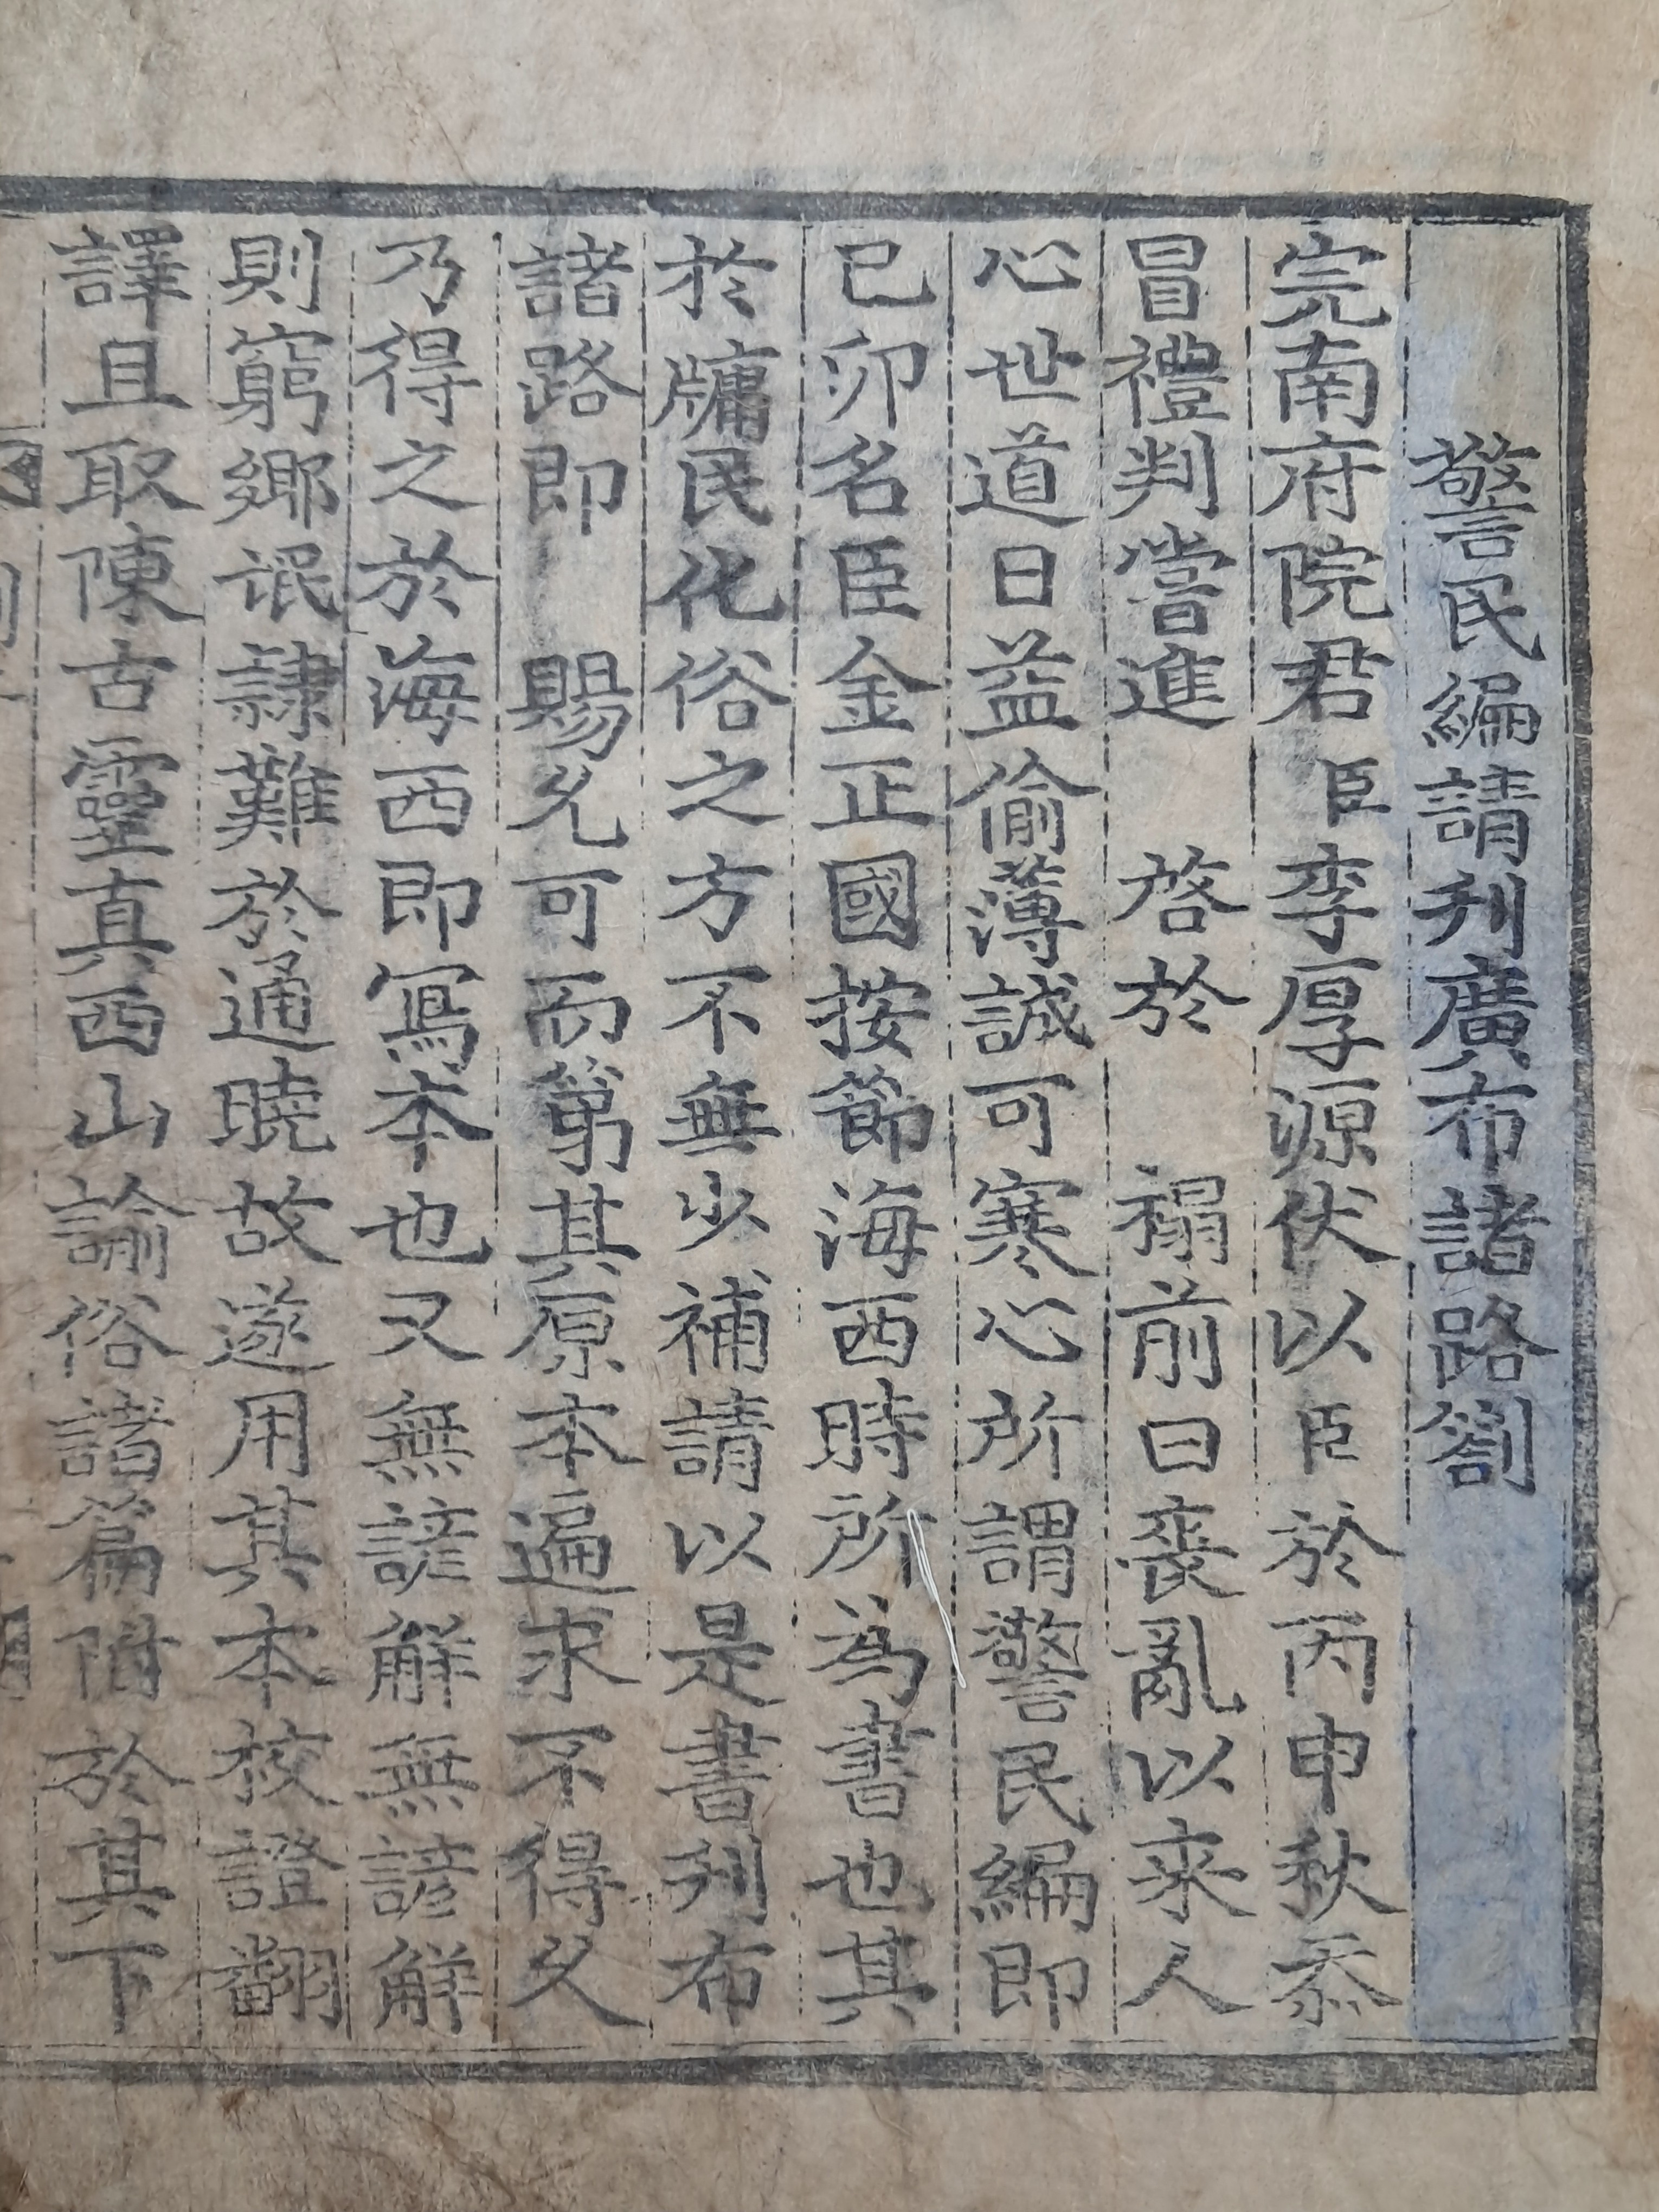 警民編請刋廣布諸路劄
完南府院君臣李厚源伏以臣於丙申秋忝
冒禮判嘗進 啓於 榻前曰喪亂以來人
心世道日益偷薄誠可寒心所謂警民編即
己卯名臣金正國按節海西時所為書也其
於牖民化俗之方不無少補請以是書刋布
諸路即 賜允可而第其原本遍求不得久
乃得之於海西即寫本也又無諺解無諺解
則窮鄉氓隷難於通曉故遂用其本校證翻
譯且取陳古靈真西山諭俗諸篇附於其下